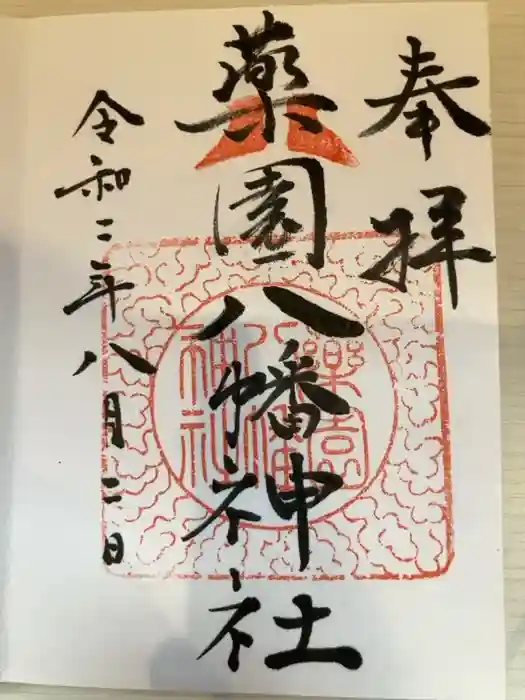 奉拝
薬園八幡神社
令和三年八月二日
薬園
八幡
神社